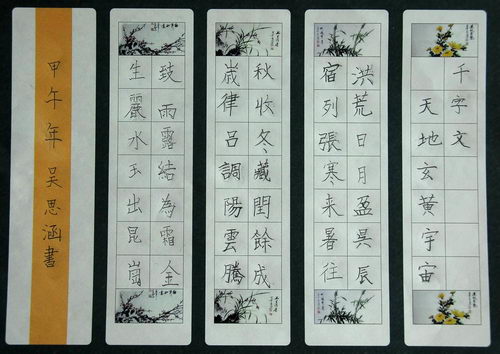 千字文
天地玄黃宇宙
洪荒日月盈昃辰
宿列張寒来暑往
秋收冬藏閏餘成
歲律呂調陽雲騰
致雨露結為霜金
生麗水玉出昆崗
甲午年吴思涵書